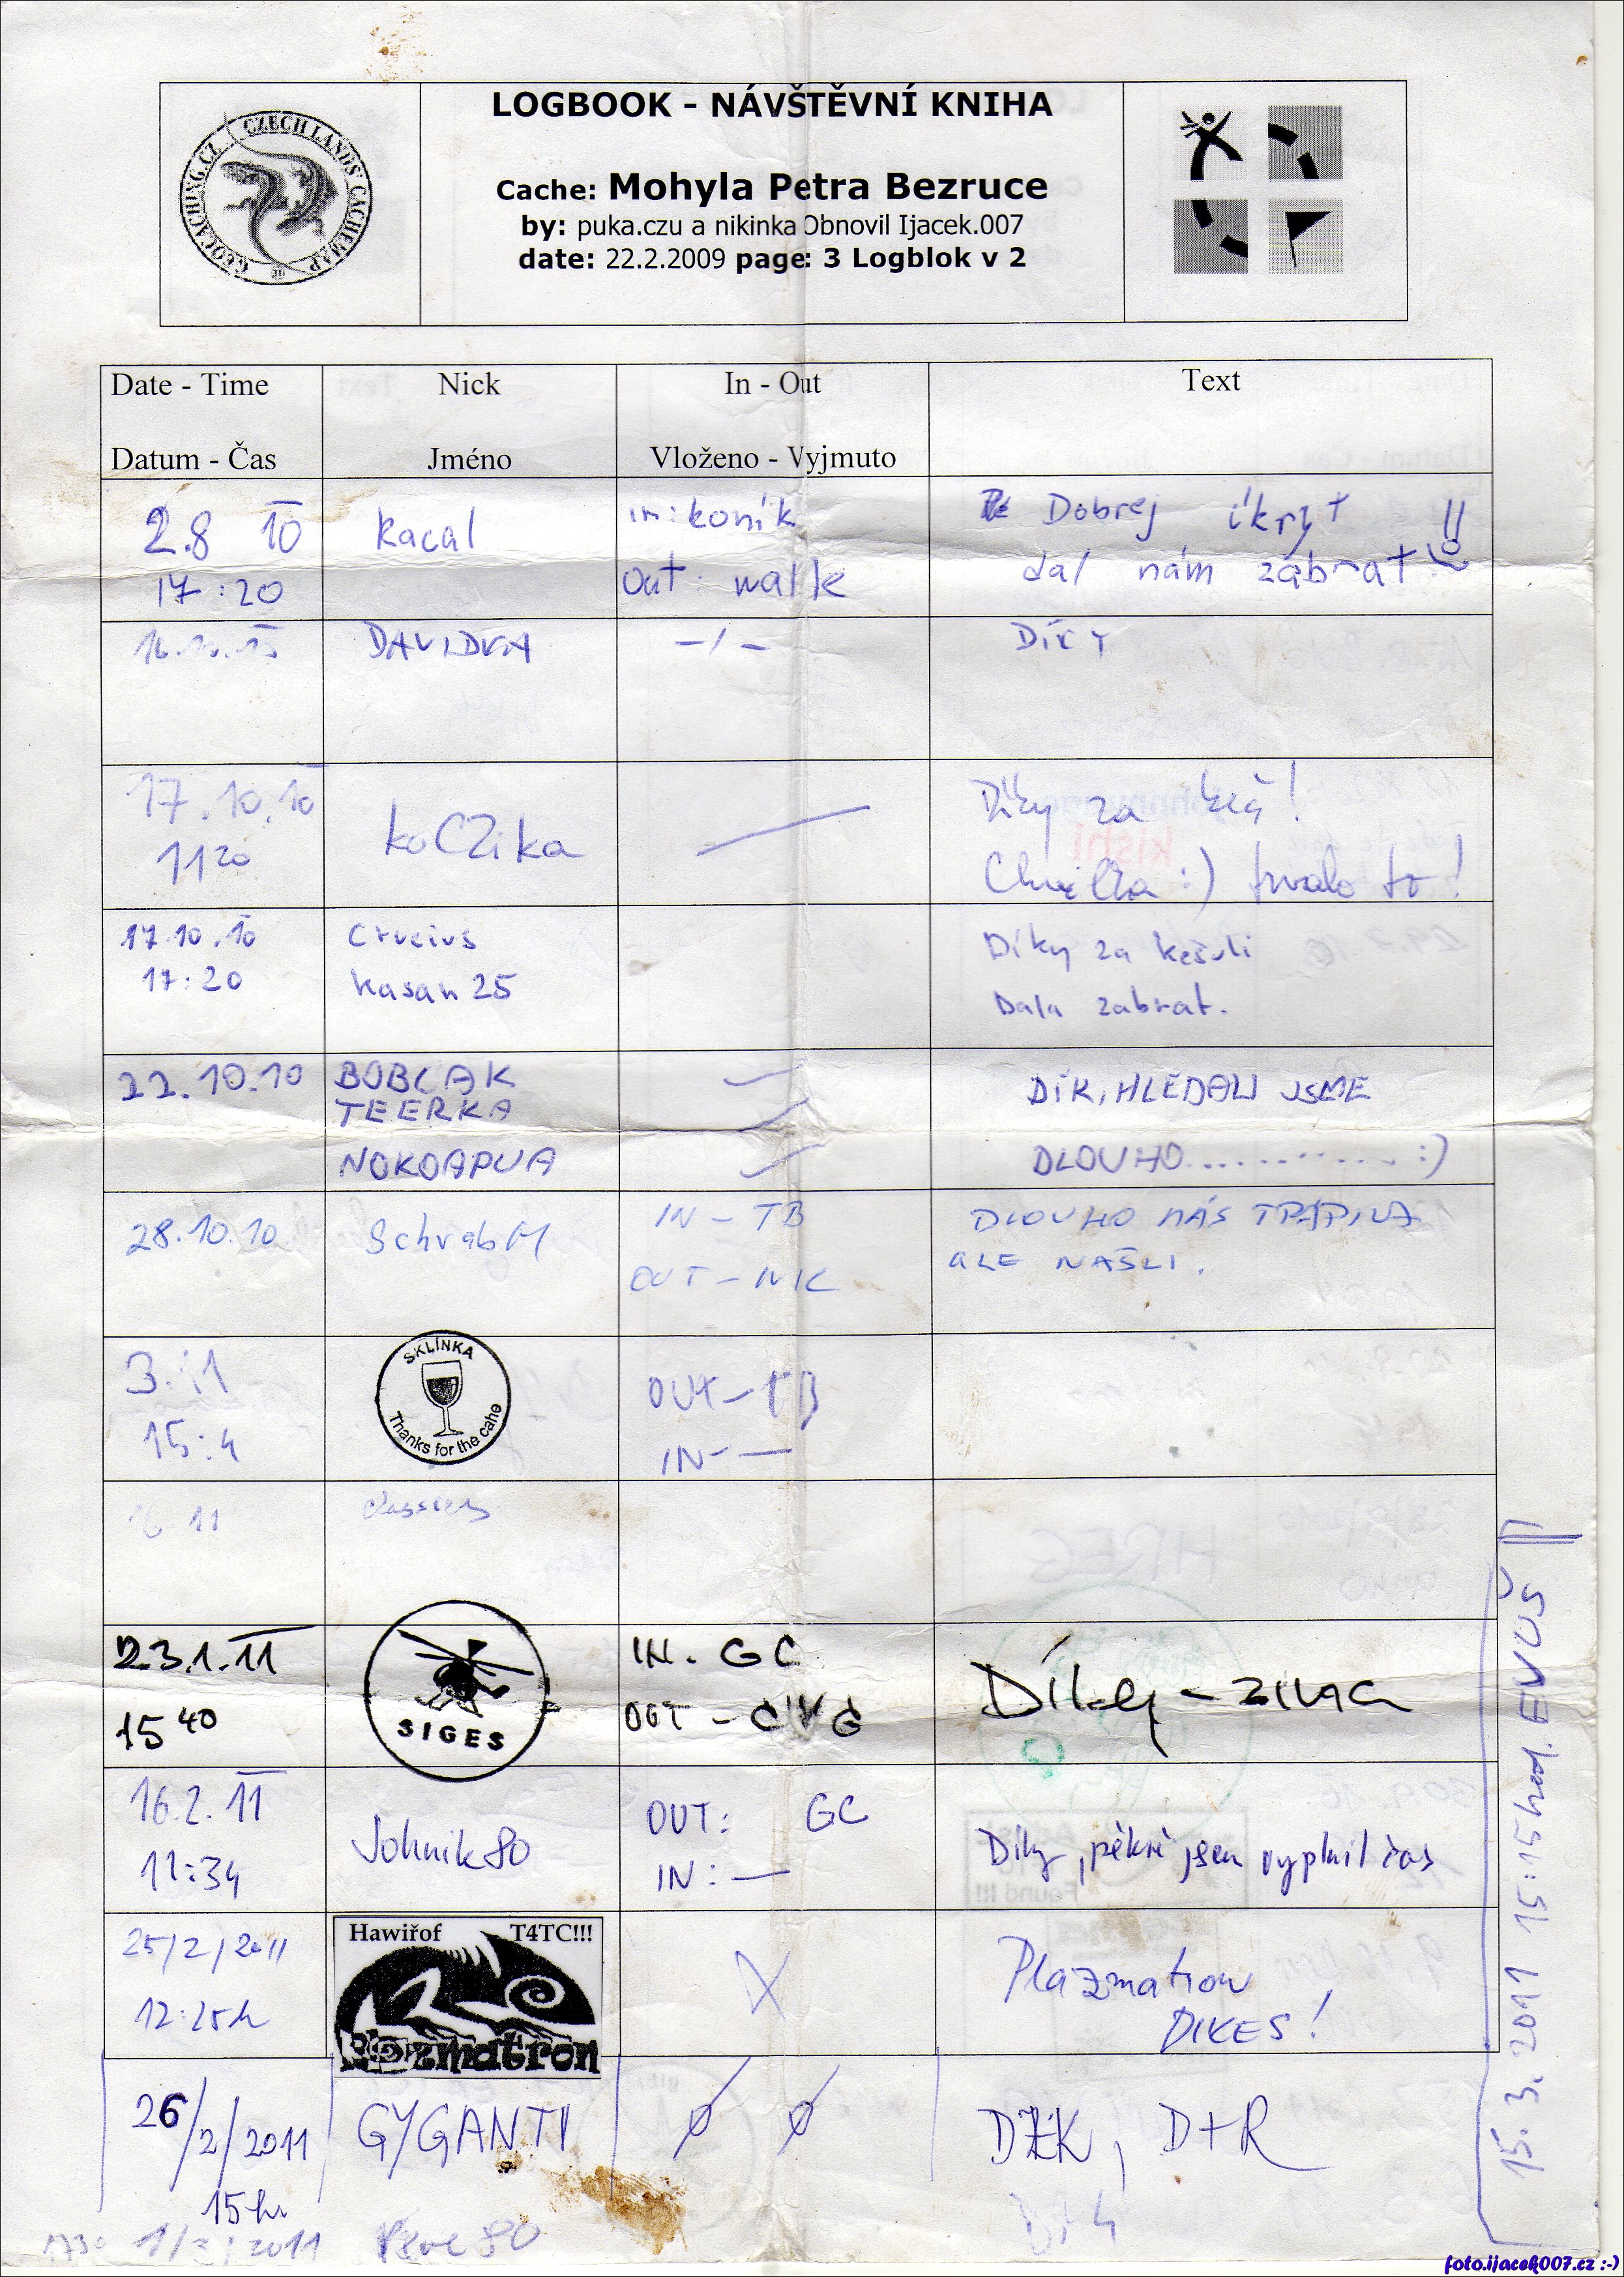 GEOCACHING.CZ CZECH LANDS' CACHEMAP
LOGBOOK - NÁVŠTĚVNÍ KNIHA
Cache: Mohyla Petra Bezruce
by: puka.czu a nikinka Obnovil Ijacek.007
date: 22.2.2009 page: 3 Logblok v 2
Date - Time Nick In - Out Text
Datum - Čas Jméno Vloženo - Vyjmuto
2.8 10 Racal in: koník Dobrej íkryt !!
17:20 out: walk dal nám zabrat
DAVIDKA -/- Díky
17.10.10 koCZika Díky za keš!
11 20 Chvilka :) trvalo to!
17.10.10 Crucius Díky za kešuli
17:20 kasan25 Dala zabrat.
22.10.10 BOBCAK DÍK, HLEDALI JSME
TEERKA
NOKOAPUA DLOUHO............ :)
28.10.10 SchrabM IN - TB DLOUHO NÁS TRÁPILA
OUT - NIC ALE NAŠLI.
3. 11 SKLÍNKA OUT - TB
15:4 Thanks for the cahe IN - —
11
23.1.11 IN. GC Díky - zima
15 40 SIGES OUT - CWG
16.2.11 Johnik80 OUT: GC
11:34 IN: — Díky, pěkně jsem vyplnil čas
25/2/2011 Hawiřof T4TC!!! X Plazmatron
12:25h Plazmatron DIKES!
26/2/2011 GYGANTI ø ø DÍK, D+R
15h
1730 1/3/2011 80 Díky
15.3.2011 15:15 hod. EVUŠ
foto.ijacek007.cz :-)